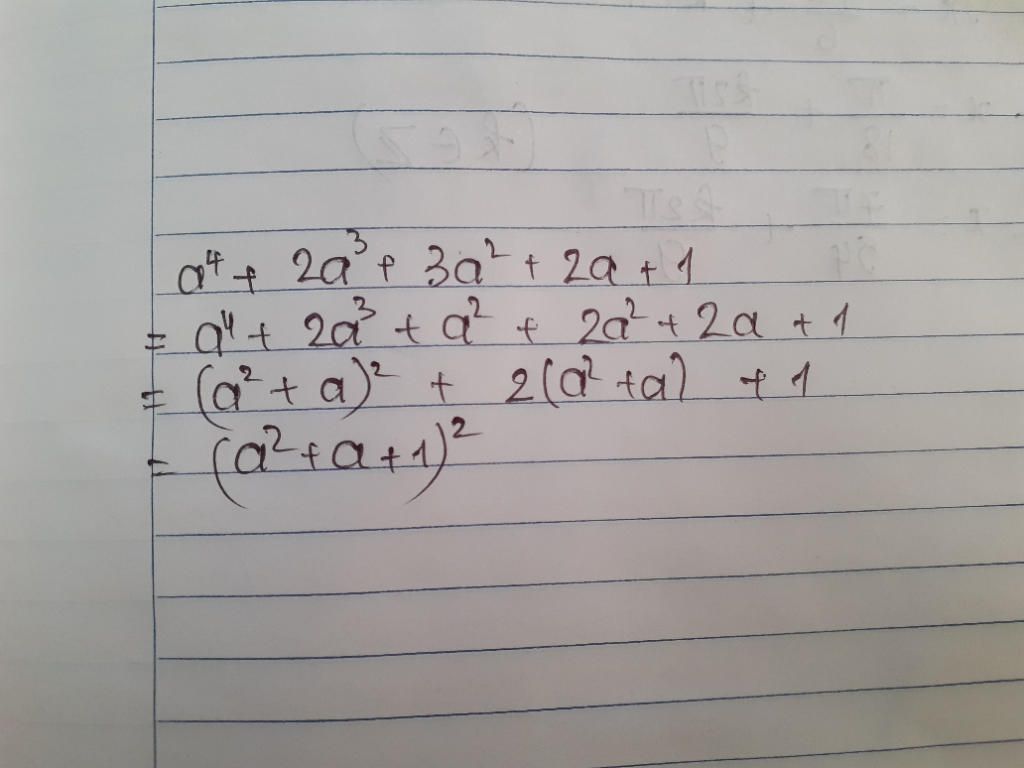 a⁴ + 2a³ + 3a² + 2a + 1
= a⁴ + 2a³ + a² + 2a² + 2a + 1
= (a² + a)² + 2(a² + a) + 1
= (a² + a + 1)²